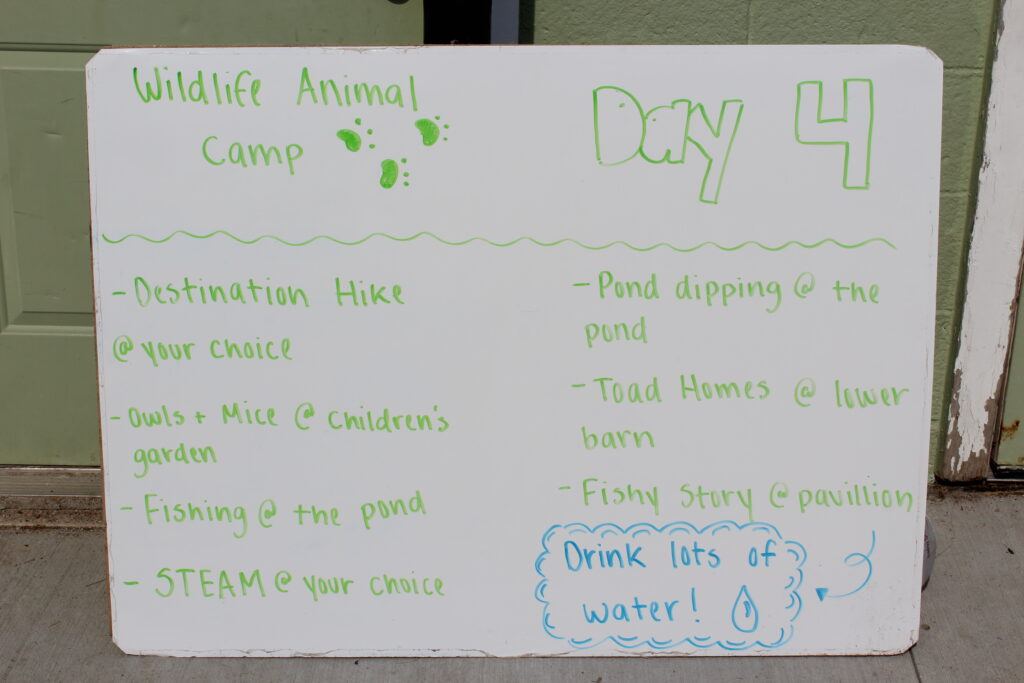 Wildlife Animal
Camp
Day 4
- Destination Hike
@ your choice
- Owls + Mice @ Children's
garden
- Fishing @ the pond
- STEAM @ your choice
- Pond dipping @ the
pond
- Toad Homes @ lower
barn
- Fishy Story @ pavillion
Drink lots of
water!